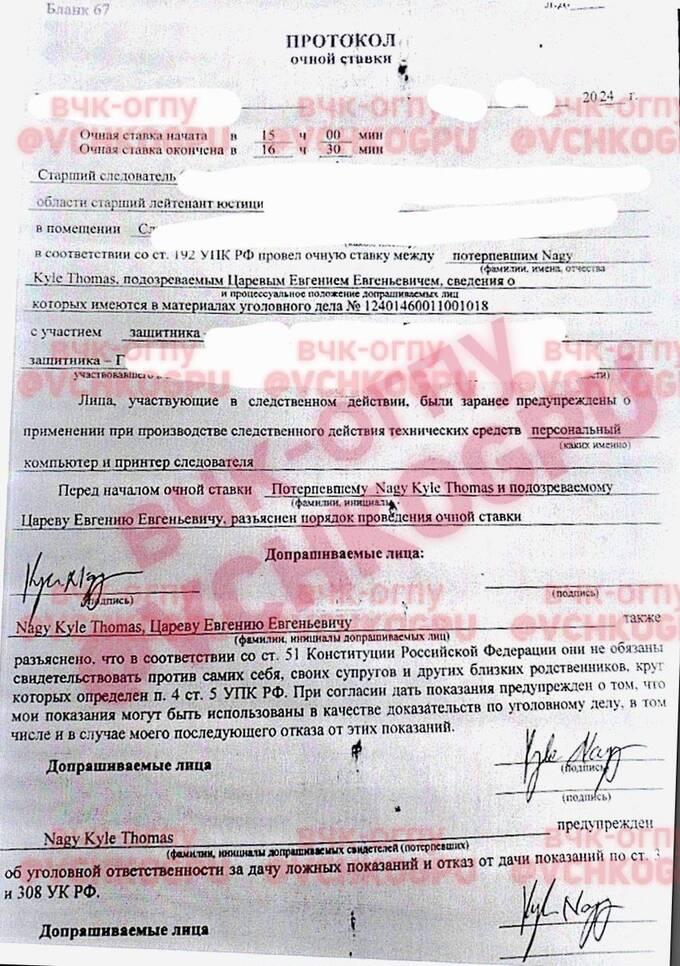 Бланк 67
ПРОТОКОЛ
очной ставки
2024 г.
ВЧК-ОГПУ ВЧК-ОГПУ ВЧК-ОГПУ
@VCHKOGPU @VCHKOGPU @VCHKOGPU
Очная ставка начата в 15 ч 00 мин
Очная ставка окончена в 16 ч 30 мин
Старший следователь
области старший лейтенант юстици
в помещении
в соответствии со ст. 192 УПК РФ провел очную ставку между потерпевшим Nagy
(фамилии, имена, отчества
Kyle Thomas, подозреваемым Царевым Евгением Евгеньевичем, сведения о
и процессуальное положение допрашиваемых лиц
которых имеются в материалах уголовного дела № 12401460011001018
с участием защитника -
ВЧК-ОГПУ ВЧК-ОГПУ ВЧК-ОГПУ
защитника – Г
@VCHKOGPU @VCHKOGPU @VCHKOGPU
участвовавшего
Лица, участвующие в следственном действии, были заранее предупреждены о
применении при производстве следственного действия технических средств персональный
(каких именно)
компьютер и принтер следователя
ВЧК-ОГПУ
@VCHKOGPU
Перед началом очной ставки Потерпевшему Nagy Kyle Thomas и подозреваемому
(фамилии, инициалы
Цареву Евгению Евгеньевичу, разъяснен порядок проведения очной ставки
Допрашиваемые лица:
Kyle Nagy
(подпись) (подпись)
ВЧК-ОГПУ ВЧК-ОГПУ ВЧК-ОГПУ
@VCHKOGPU @VCHKOGPU @VCHKOGPU
Nagy Kyle Thomas, Цареву Евгению Евгеньевичу также
(фамилии, инициалы допрашиваемых лиц)
разъяснено, что в соответствии со ст. 51 Конституции Российской Федерации они не обязаны
свидетельствовать против самих себя, своих супругов и других близких родственников, круг
которых определен п. 4 ст. 5 УПК РФ. При согласии дать показания предупрежден о том, что
мои показания могут быть использованы в качестве доказательств по уголовному делу, в том
числе и в случае моего последующего отказа от этих показаний.
Kyle Nagy
Допрашиваемые лица
(подпись)
(подпись)
Nagy Kyle Thomas предупрежден
ВЧК-ОГПУ ВЧК-ОГПУ ВЧК-ОГПУ
(фамилии, инициалы допрашиваемых свидетелей (потерпевших)
@VCHKOGPU @VCHKOGPU @VCHKOGPU
об уголовной ответственности за дачу ложных показаний и отказ от дачи показаний по ст. 3
и 308 УК РФ.
Kyle Nagy
Допрашиваемые лица